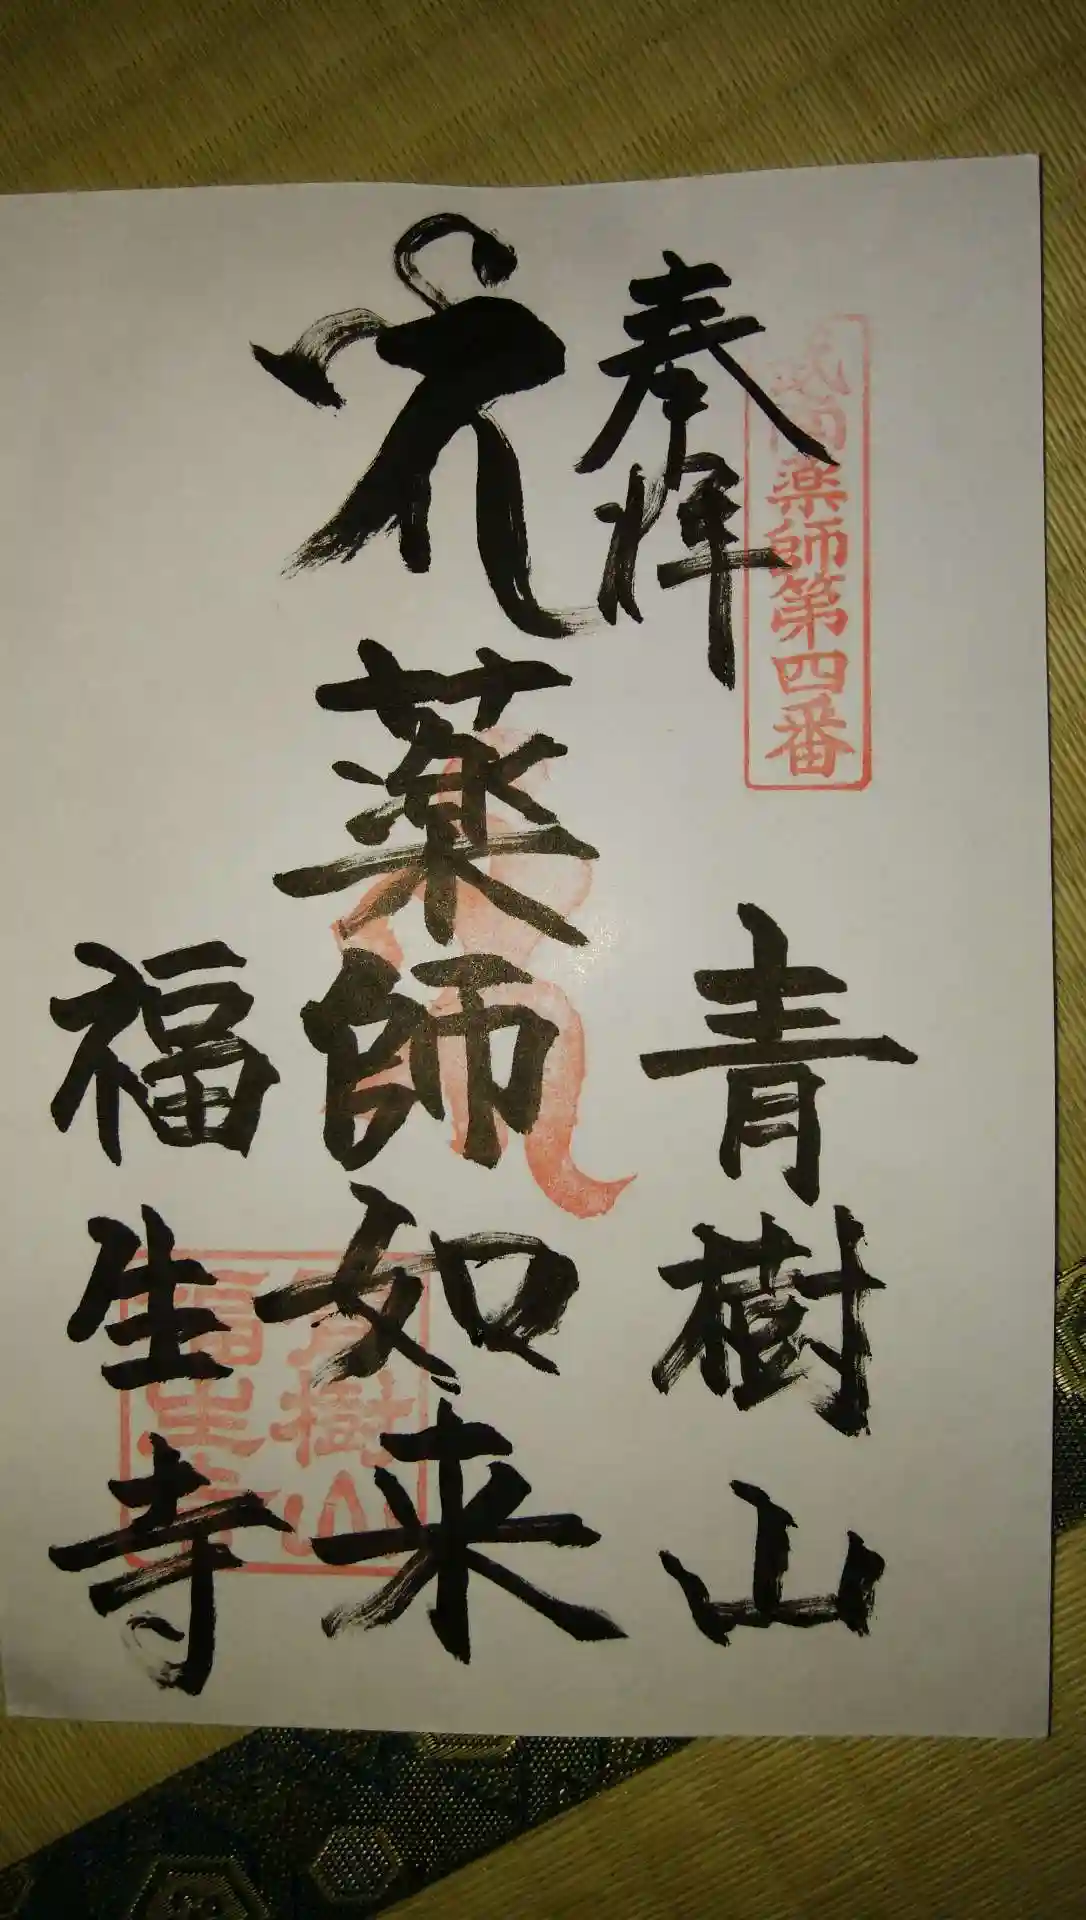 武南薬師第四番
奉拝
青樹山
薬師如来
福生寺
青樹山
福生寺